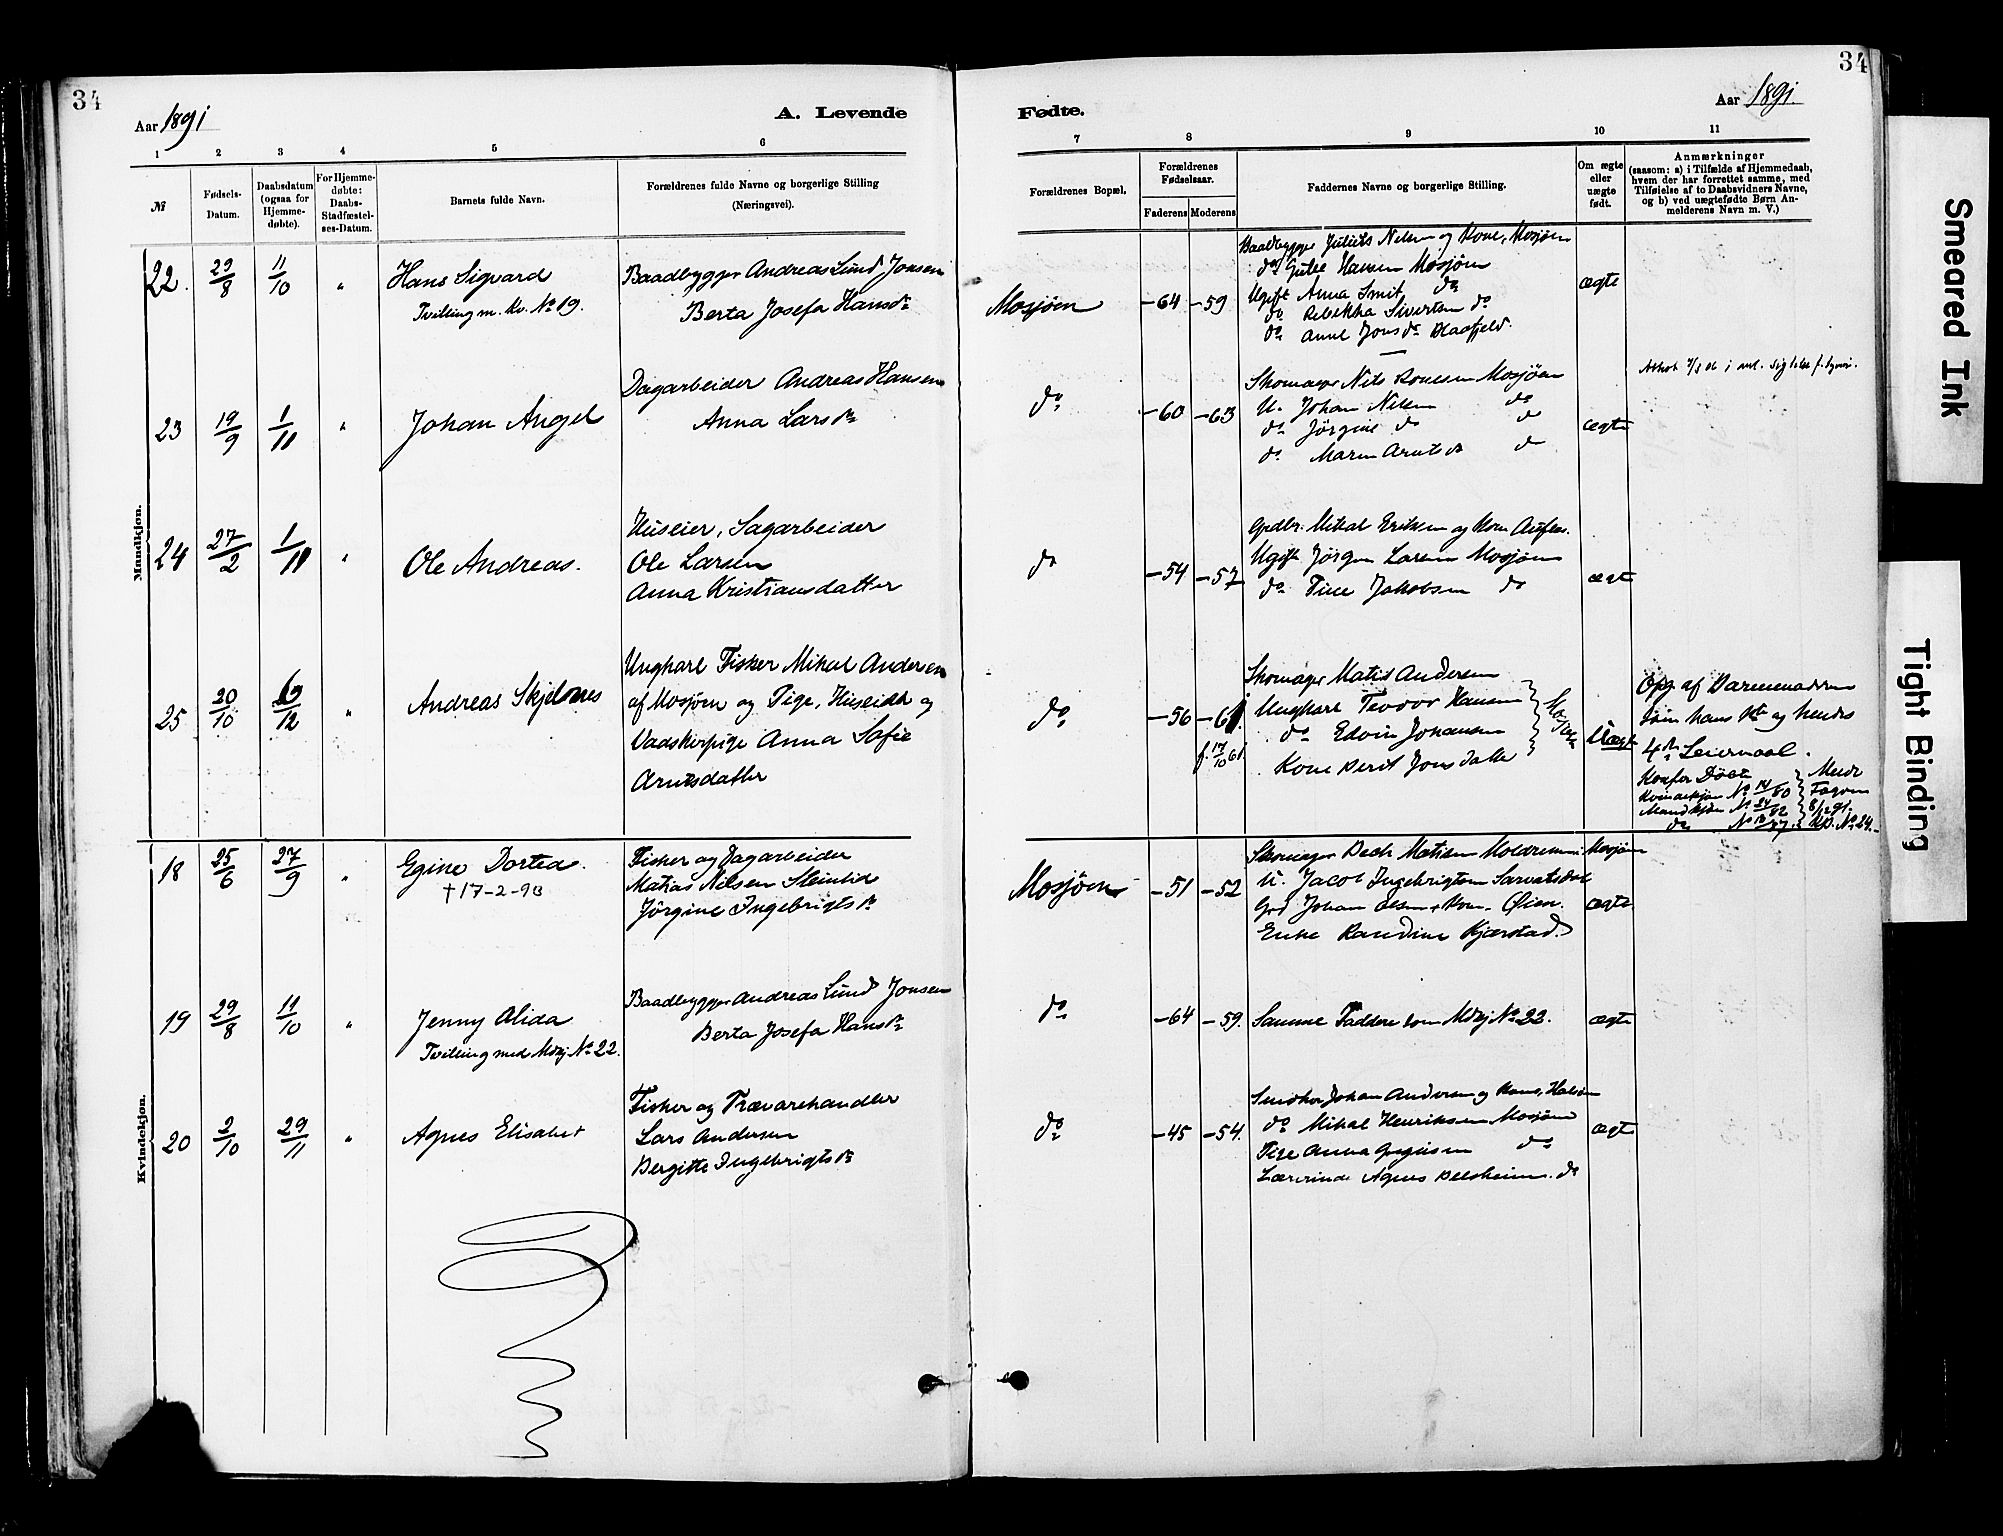 34
Aar 1891
A. Levende
1 2 3 4 5 6
№
Fødsels-Datum.
Daabsdatum (ogsaa for Hjemmedøbte).
For Hjemmedøbte: Daabs-Stadfæstelses-Datum.
Barnets fulde Navn.
Forældrenes fulde Navne og borgerlige Stilling
(Næringsvei).
Mandkjøn.
22. 29/8 11/10 " Hans Sigvard
Tvilling m. Kv. No 19.
Baadbygger Andreas Lund Jonsen
Berta Josefa Hansdr
23 19/9 1/11 " Johan Angel
Dagarbeider Andreas Hansen
Anna Larsdr
24 27/2 1/11 " Ole Andreas.
Huseier, Sagarbeider
Ole Larsen
Anna Kristiansdatter
25 20/10 6/12 " Andreas Skjelnes
Ungkarl Fisker Mikal Andersen
af Mosjøen og Pige, Huseidr og
Vadskerpige Anna Sofie
Arntsdatter
Kvindekjøn.
18 25/6 27/9 " Egine Dortea.
† 17-2-93
Fisker og Dagarbeider
Matias Nilsen Steinlid
Jørgine Ingebrigtsdr
19 29/8 11/10 " Jenny Alida
Tvilling med Mkj No 22.
Baadbygger Andreas Lund Jonsen
Berta Josefa Hansdr
20 2/10 29/11 " Agnes Elisabet
Fisker og Trævarehandler
Lars Andersen
Bergitte Ingebrigtsdr
34
Aar 1891.
Fødte.
7 8 9 10 11
Forældrenes Bopæl.
Forældrenes Fødselsaar.
Faderens Moderens
Faddernes Navne og borgerlige Stilling.
Om ægte eller uægte født.
Anmærkninger
(saasom: a) i Tilfælde af Hjemmedaab,
hvem der har forrettet samme, med
Tilføielse af to Daabsvidners Navne,
og b) ved uægtefødte Børn Anmelderens Navn m. V.)
Mosjøen -64 -59
Baadbygger Julius Nilsen og Kone, Mosjøen
do Gulle Hansen Mosjøen
Ugift Anna Smit do
do Rebekka Sivertsen do
do Anne Jonsdr
ægte
do -60 -63
Skomager Nils Mosjøen
U. Johan Nilsen do
do Jørgine do do
do Maren Arntsdr do
ægte
do -54 -57
Grdbr. Mikal Eriksen og Kone
Ugift Jørgen Larsen Mosjøen
do Tine Jakobsen do
ægte
do -56 -61.
f. 17/10 61.
Skomager Matis Andersen
Ungkarl Teodor Hansen
do Edvin Johansen
Kone Berit Jonsdatter
Mosjøen
Uægte
Opg. af Barnemoderen
som hans og hendes
4de Leiermaal.
Kvindekjøn No 14/80
Mandkjøn No 34/82
do No 13/87.
8/12 91.
Mosjøen -51 -52
Skomager Mosjøen
U. Jacob Ingebrigtsen
Grd Johan Olsen + Kone. Øien.
Enke Randine Kjærstad.
ægte
do -64 -59.
Samme Faddere som Mkj No 22.
ægte
do -45 -54.
Johan Andersen og Kone,
do Mikal Henriksen Mosjøen
Pige Anna do
Lærerinde Agnes do
ægte
Smeared Ink
Tight Binding